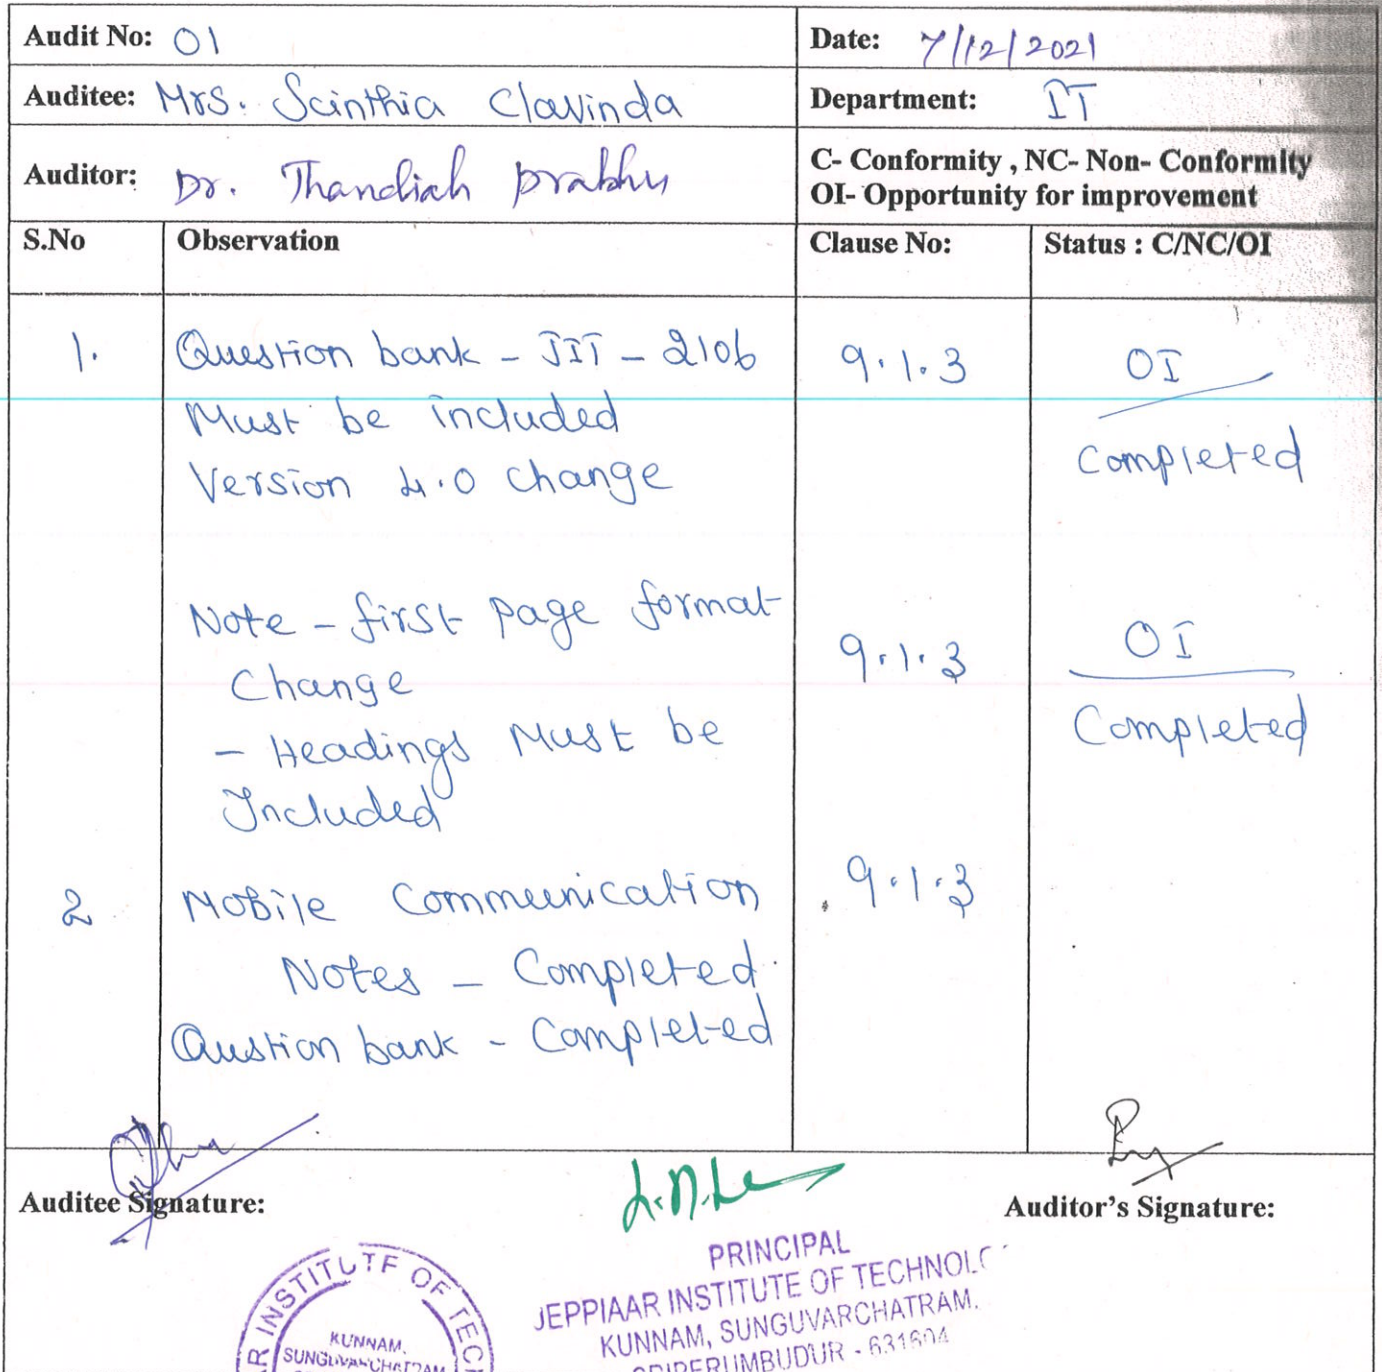 Audit No: 01 Date: 7/12/2021
Auditee: Mrs. Scinthia Clavinda Department: IT
Auditor: Dr. Thandiah prabhu C- Conformity , NC- Non- Conformity
OI- Opportunity for improvement
S.No Observation Clause No: Status : C/NC/OI
1. Question bank - JIT - 2106 9.1.3 OI
Must be included
Version 4.0 change Completed
Note - first page format
Change 9.1.3 OI
- Headings Must be Completed
Included
2 Mobile Communication 9.1.3
Notes - Completed
Qustion bank - Completed
Auditee Signature: Auditor's Signature:
PRINCIPAL
JEPPIAAR INSTITUTE OF TECHNOLO
KUNNAM, SUNGUVARCHATRAM.
SRIPERUMBUDUR - 631604
R INSTITUTE OF TEC
KUNNAM,
SUNGUVARCHATRAM